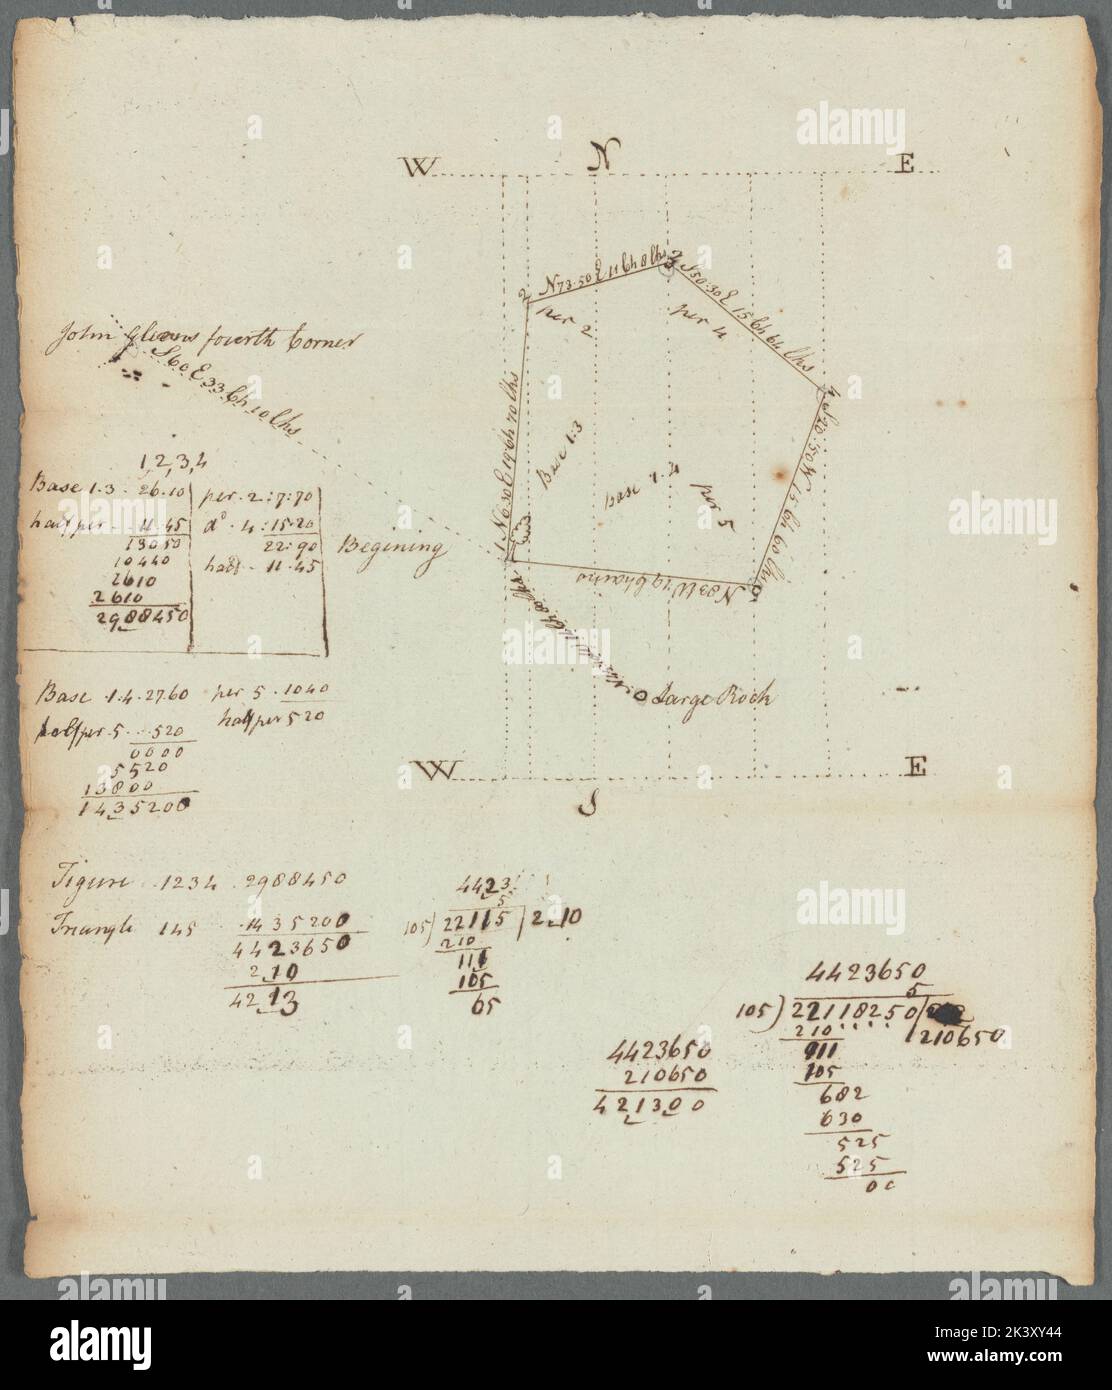 W N E
N 73·50 E 11 Ch 8 lks
2
3
S 50·30 E 15 Ch 64 lks
per 2
per 4
4
S 20·50 W 15 Ch 60 lks
1 N 6·30 E 19 Ch 70 lks
Base 1.3
Base 1.4
per 5
5
N 83 W 19 Chains
John fourth Corner
S 60 E 33 Ch 10 lks
Begining
Large Rock
W E
S
1,2,3,4
Base 1.3 - 26.10 per. 2:7:70
half per - - 11.45 do. 4:15.20
13050 22:90
10440 half - 11.45
2610
2610
2988450
Base .1.4.27.60 per 5 . 1040
half per. 5 ... 520 half per 520
0000
5520
13800
1435200
Figure .1234 .2988450
Triangle 145 .1435200
4423650
210
4213
4423
5
105) 22115 / 210
210
111
105
65
4423650
210650
421300
4423650
5
105) 22118250 /
210 .... 210650
911
105
682
630
525
525
00
alamy
a
alamy
Image ID: 2K3XY44
www.alamy.com